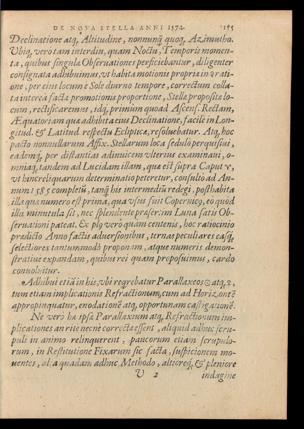 DE NOVA STELLA ANNI 1572. 155
Declinatione atq, Altitudine, nonnunq̃ quoq, Azimutho.
Ubiq, verò tam interdiu, quam Noctu, Temporis momen-
ta, quibus singulæ Observationes perficiebantur, diligenter
consignata adhibuimus, ut habita motionis propriæ in ratione
, per eius locum è Sole diurno tempore, correctum colla-
ta interea facta promotionis proportione, Stellæ propositæ lo-
cum, rectificaremus, idq, primùm quoad Ascens. Rectam,
Æquatoream quæ adhibita eius Declinatione, facile in Lon-
gitud. & Latitud. respectu Eclipticæ, resolvebatur. Atq, hoc
pacto nonnullarum Affix. Stellarum loca sedulo perquisivi,
eademq, per distantias adinvicem viterius examinavi, o-
mniaq, tandem ad Lucidam illam, quæ est supra Caput ♈,
ut hinc reliquarum determinatio peteretur, consulto ad An-
num 1585 completũ, tanq̃ hic intermediũ redegi, posthabita
illa quæ numero est prima, qua usus fuit Copernicus, eò quod
illa minutula sit, nec splendente præsertim Luna satis Ob-
servationi pateat. Ex
quàm centenis, hoc ratiocinio
prædicto Anno factis adversionibus, ternas peculiares easq,
selectiores tantummodò proponam, atque numeris demon-
strativè expandam, quibus rei quam proposuimus, cardo
convolvitur.
Adhibui etiã in his, ubi reqrebatur Parallaxeos ☉ atq,
tum etiam implicationis Refractionum, cum ad Horizontẽ
appropinquatur, enodationẽ atq, opportunam castigationẽ.
Ne verò hæ ipsæ Parallaxium atq, Refractionum im-
plicationes an ritè necne correctæ essent, aliquid adhuc scru-
puli in animo relinquerent, paucorum etiam scrupulo-
rum, in Restitutione Fixarum sic facta, suspicionem mo-
ventes, alia quadam adhuc Methodo, altioreq, & pleniore
V 2 indagine